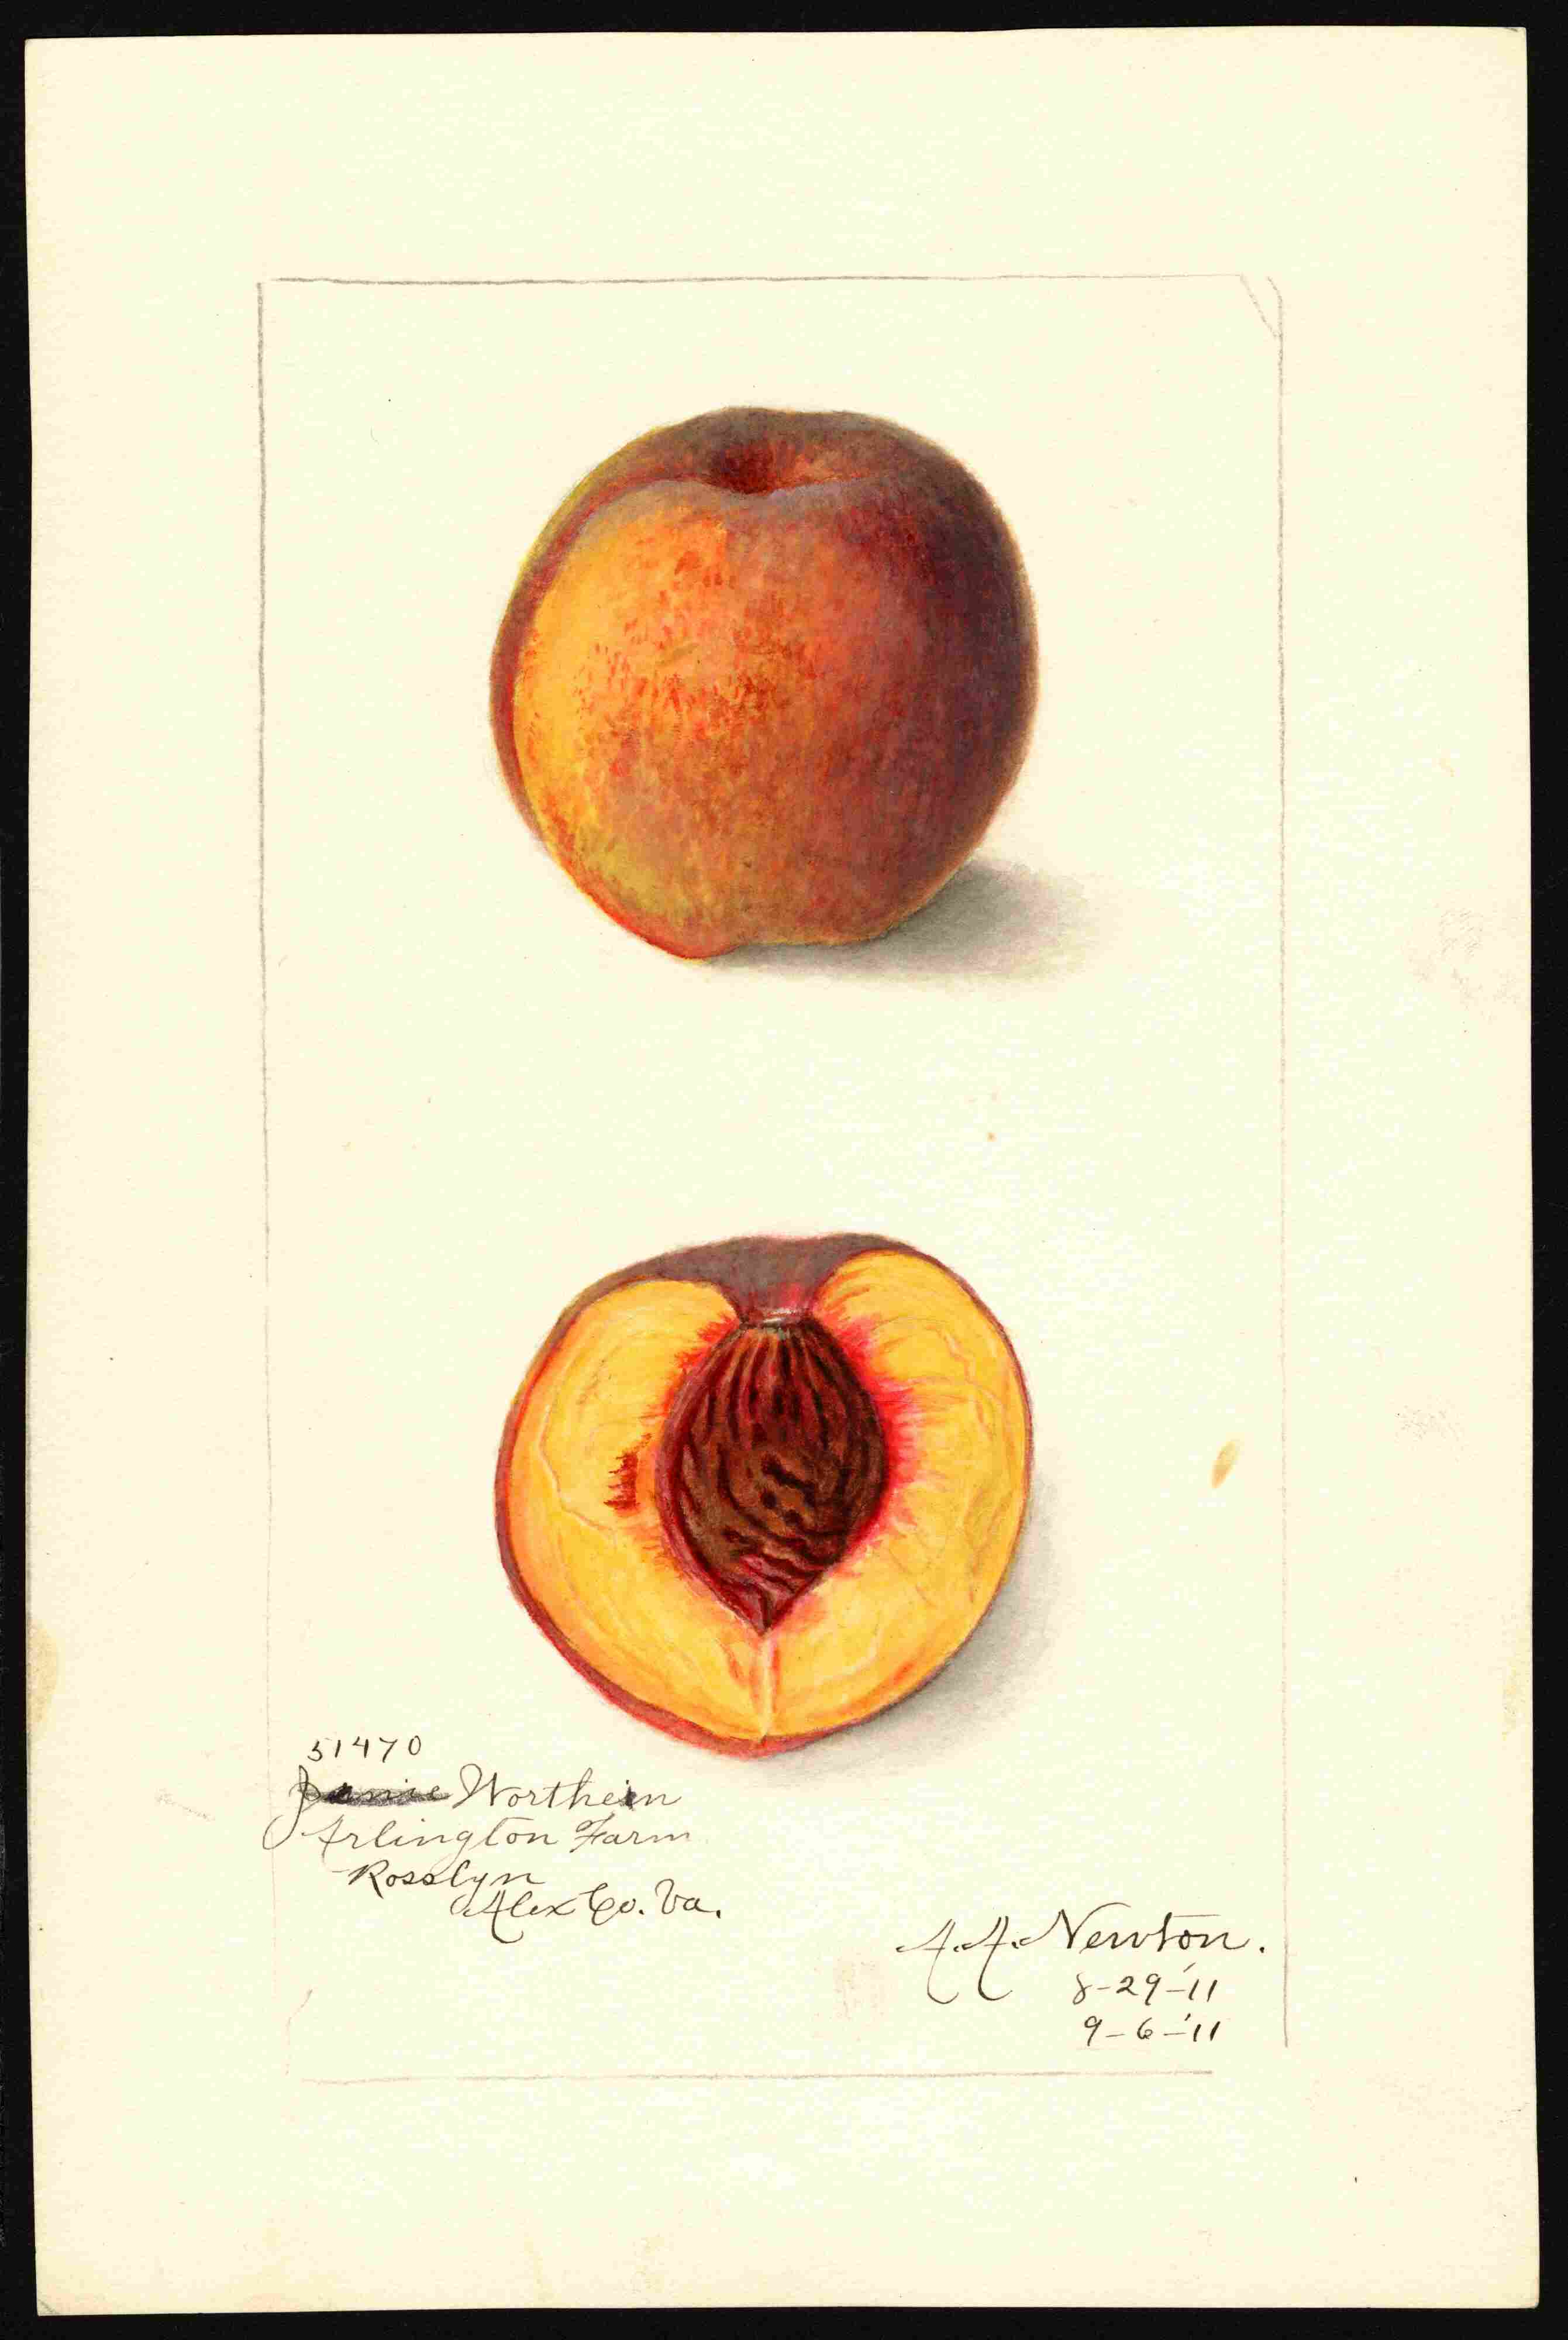 51470
Janie Worthein
Arlington Farm
Rosslyn
Alex Co. Va.
A. A. Newton.
8-29-'11
9-6-'11